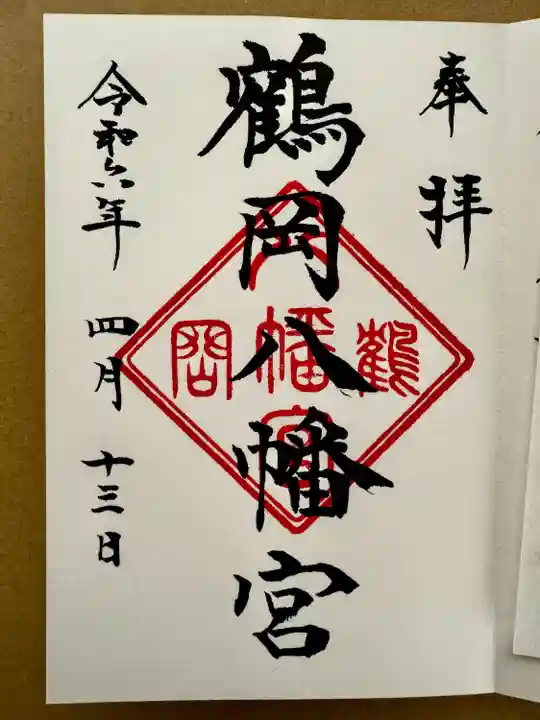 奉拝
鶴岡八幡宮
鶴
八幡宮
岡
令和六年 四月 十三日